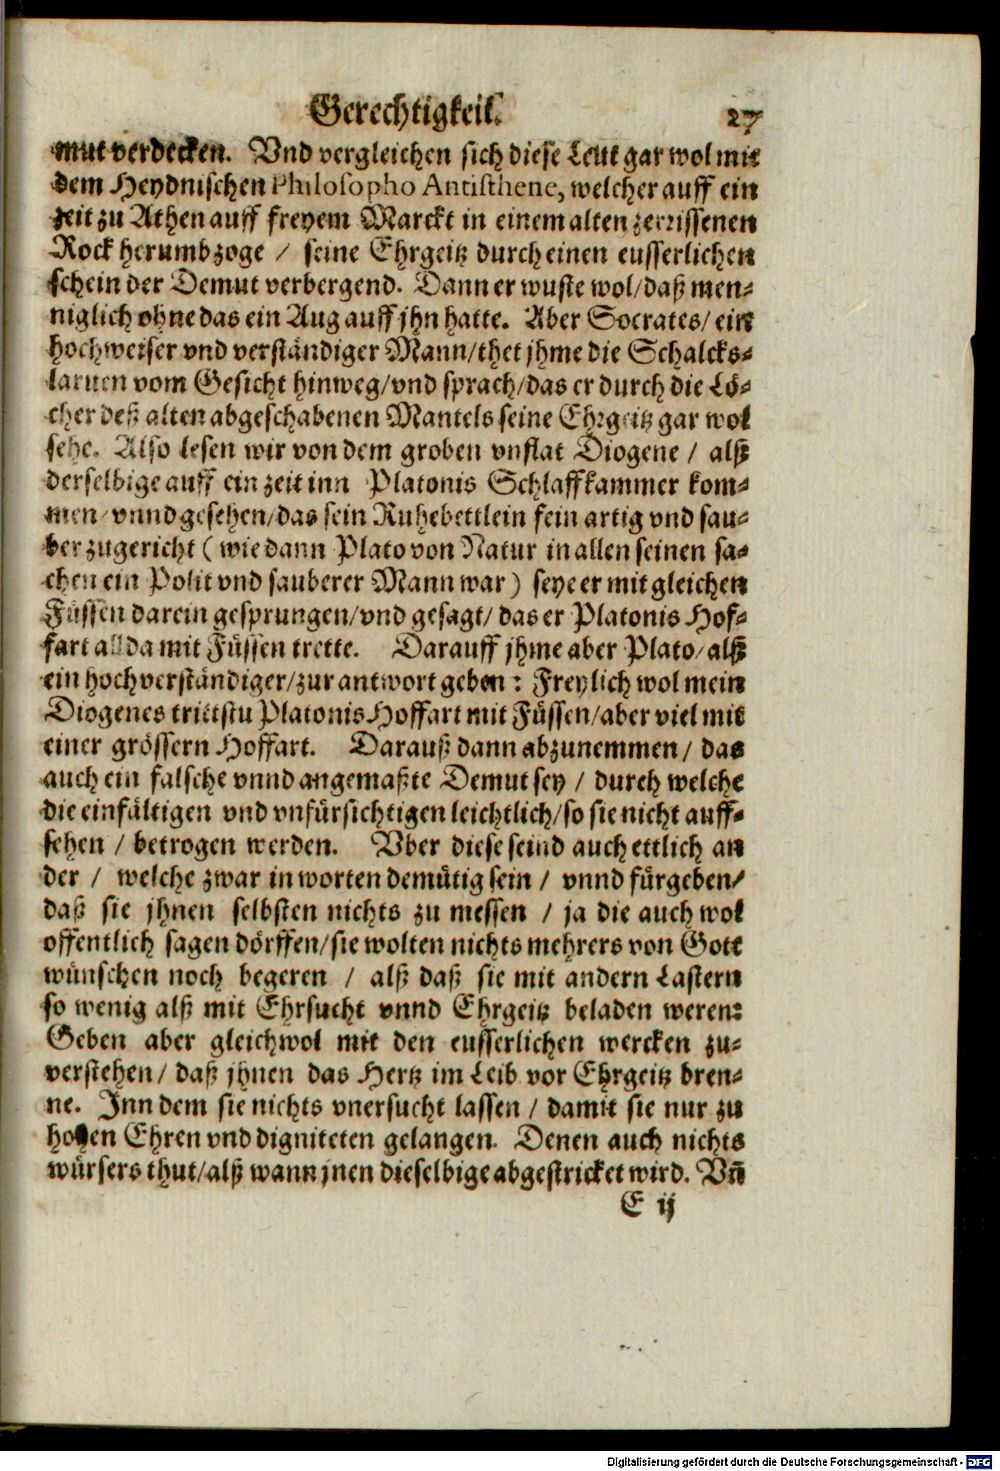 Gerechtigkeit. 27
mut verdecken. Vnd vergleichen sich diese Leut gar wol mit
dem Heydnischen Philosopho Antisthene, welcher auff ein
zeit zu Athen auff freyem Marckt in einem alten zerrissenen
Rock herumbzoge / seine Ehrgeitz durch einen eusserlichen
schein der Demut verbergend. Dann er wuste wol/daß men-
niglich ohne das ein Aug auff jhn hatte. Aber Socrates/ ein
hochweiser vnd verständiger Mann/thet jhme die Schalcks-
laruen vom Gesicht hinweg/vnd sprach/das er durch die Lö-
cher deß alten abgeschabenen Mantels seine Ehrgeitz gar wol
sehe. Also lesen wir von dem groben vnflat Diogene / alß
derselbige auff ein zeit inn Platonis Schlaffkammer kom-
men/vnnd gesehen/das sein Ruhebettlein fein artig vnd sau-
ber zugericht ( wie dann Plato von Natur in allen seinen sa-
chen ein Polit vnd sauberer Mann war) seye er mit gleichen
Füssen darein gesprungen/vnd gesagt/das er Platonis Hof-
fart allda mit Füssen trette. Darauff jhme aber Plato/alß
ein hochverständiger/zur antwort geben: Freylich wol mein
Diogenes trittstu Platonis Hoffart mit Füssen/aber viel mit
einer grössern Hoffart. Darauß dann abzunemmen / das
auch ein falsche vnnd angemaßte Demut sey / durch welche
die einfältigen vnd vnfürsichtigen leichtlich/so sie nicht auff-
sehen / betrogen werden. Vber diese seind auch ettlich an
der / welche zwar in worten demütig sein / vnnd fürgeben/
daß sie jhnen selbsten nichts zu messen / ja die auch wol
offentlich sagen dörffen/sie wolten nichts mehrers von Gott
wünschen noch begeren / alß daß sie mit andern Lastern
so wenig alß mit Ehrsucht vnnd Ehrgeitz beladen weren:
Geben aber gleichwol mit den eusserlichen wercken zu-
verstehen/ daß jhnen das Hertz im Leib vor Ehrgeitz bren-
ne. Inn dem sie nichts vnersucht lassen / damit sie nur zu
hohen Ehren vnd digniteten gelangen. Denen auch nichts
würsers thut/alß wann jnen dieselbige abgestricket wird. Vñ
E ij
Digitalisierung gefördert durch die Deutsche Forschungsgemeinschaft - DFG